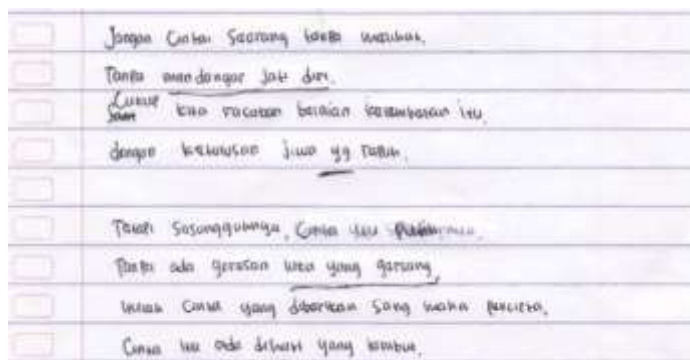 Jangan Cintai Seorang tanpa melihat.
Tanpa mendengar Jati diri.
Cukup kita rasakan belaian kelembutan itu.
dengan ketulusan jiwa yg
Tetapi Sesungguhnya, Cinta itu
Tanpa ada goresan luka yang garang,
Cinta yang diberikan Sang maha pencipta.
Cinta itu ada dihati yang lembut.